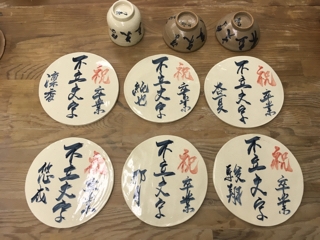 祝
卒業
不立文字
祝
卒業
不立文字
純也
祝
卒業
不立文字
祝
卒業
不立文字
悠成
祝
卒業
不立文字
祝
卒業
不立文字
駿翔